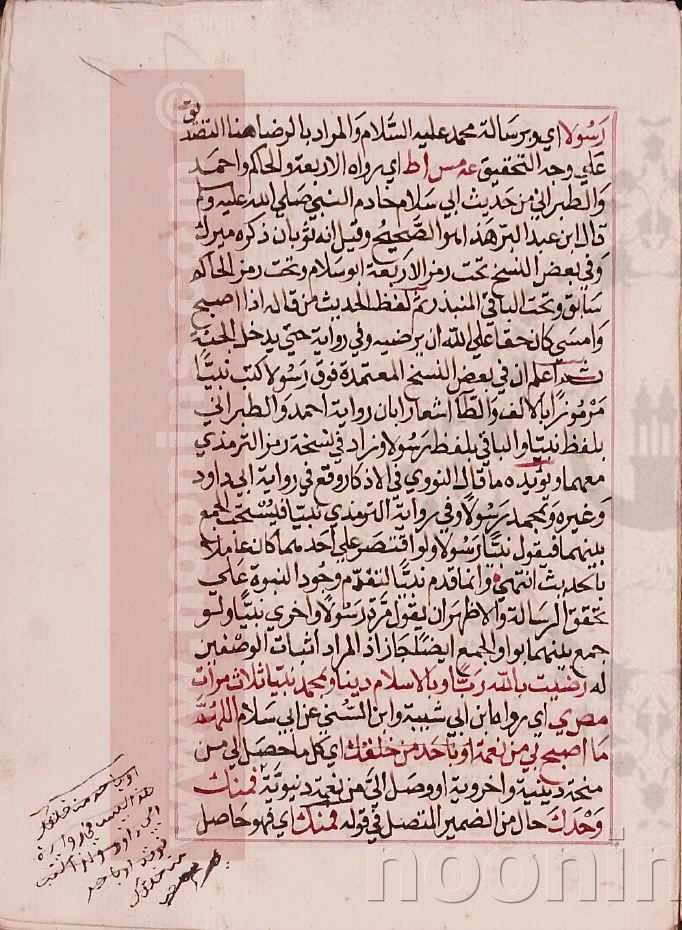 رَسُولا اي وبرسالة محمد عليه السَّلام وَالمراد بالرضا هنا التصديق
عَلي وجه التحقيق عه مس اط اي رواه الاربعة والحاكم واحمد
وَالطبراني من حَديث ابي سَلام خادم النبي صَلي الله عليه وسلم
قال ابن عبد البر هَذا هو الصَّحيح وقيل انه ثوبان ذكره ميرك
وَفي بعض النسخ تحت رمز الاربعة ابو سلام وتحت رمز الحاكم
سَابق وتحت الباقي المنيذر ثم لفظ الحديث من قال اذا اصبح
وَامسي كان حقا علي الله ان يرضيه وفي رواية حتي يدخل الجنة
اعلم ان في بعض النسخ المعتمدة فوق رَسُولا كتب نبيًّا
مَرْمُوزًا بالالف وَالطا اشعارا بان رواية احمد وَالطبراني
بلفظ نبيًّا والباقي بلفظ رَسُولا وزاد في نسخة رمز الترمذي
معهما ويؤيده ما قال النووي في الاذكار وقع في رواية ابي داود
وَغيره وبمحمد رَسُولًا وفي رواية الترمذي نبيًّا فيستحب الجمع
بينهما فيقول نبيًّا رَسُولا ولو اقتصر علي احدهما كان عاملا
بالحديث انتهي وانما قدم نبيًّا لتقدم وجود النبوة عَلي
تحقق الرسالة وَالاظهر ان يقول مَرّة رَسُولًا واخري نبيًّا ولو
جمع بينهما بواو الجمع ايضًا لجاز اذ المراد اثبات الوصفين
له رضيت بالله رَبًّا وبالاسلام دينا وبمحمد نبيًّا ثلاث مرات
مص ي اي رواه ابن ابي شيبة وابن السُّني عن ابي سَلام اللهُمَّ
مَا اصبح بي من نعمة او باحد من خلقك اي كل ما حصل لي من
منحة دينية واخروية او وصل اليَّ من نعمة دنيويَّة فمنك
وَحدك حال من الضمير المتصل في قوله فمنك اي فهو حاصل
او باحد من خلقك
من خلقك
www.noorins.com
noorin